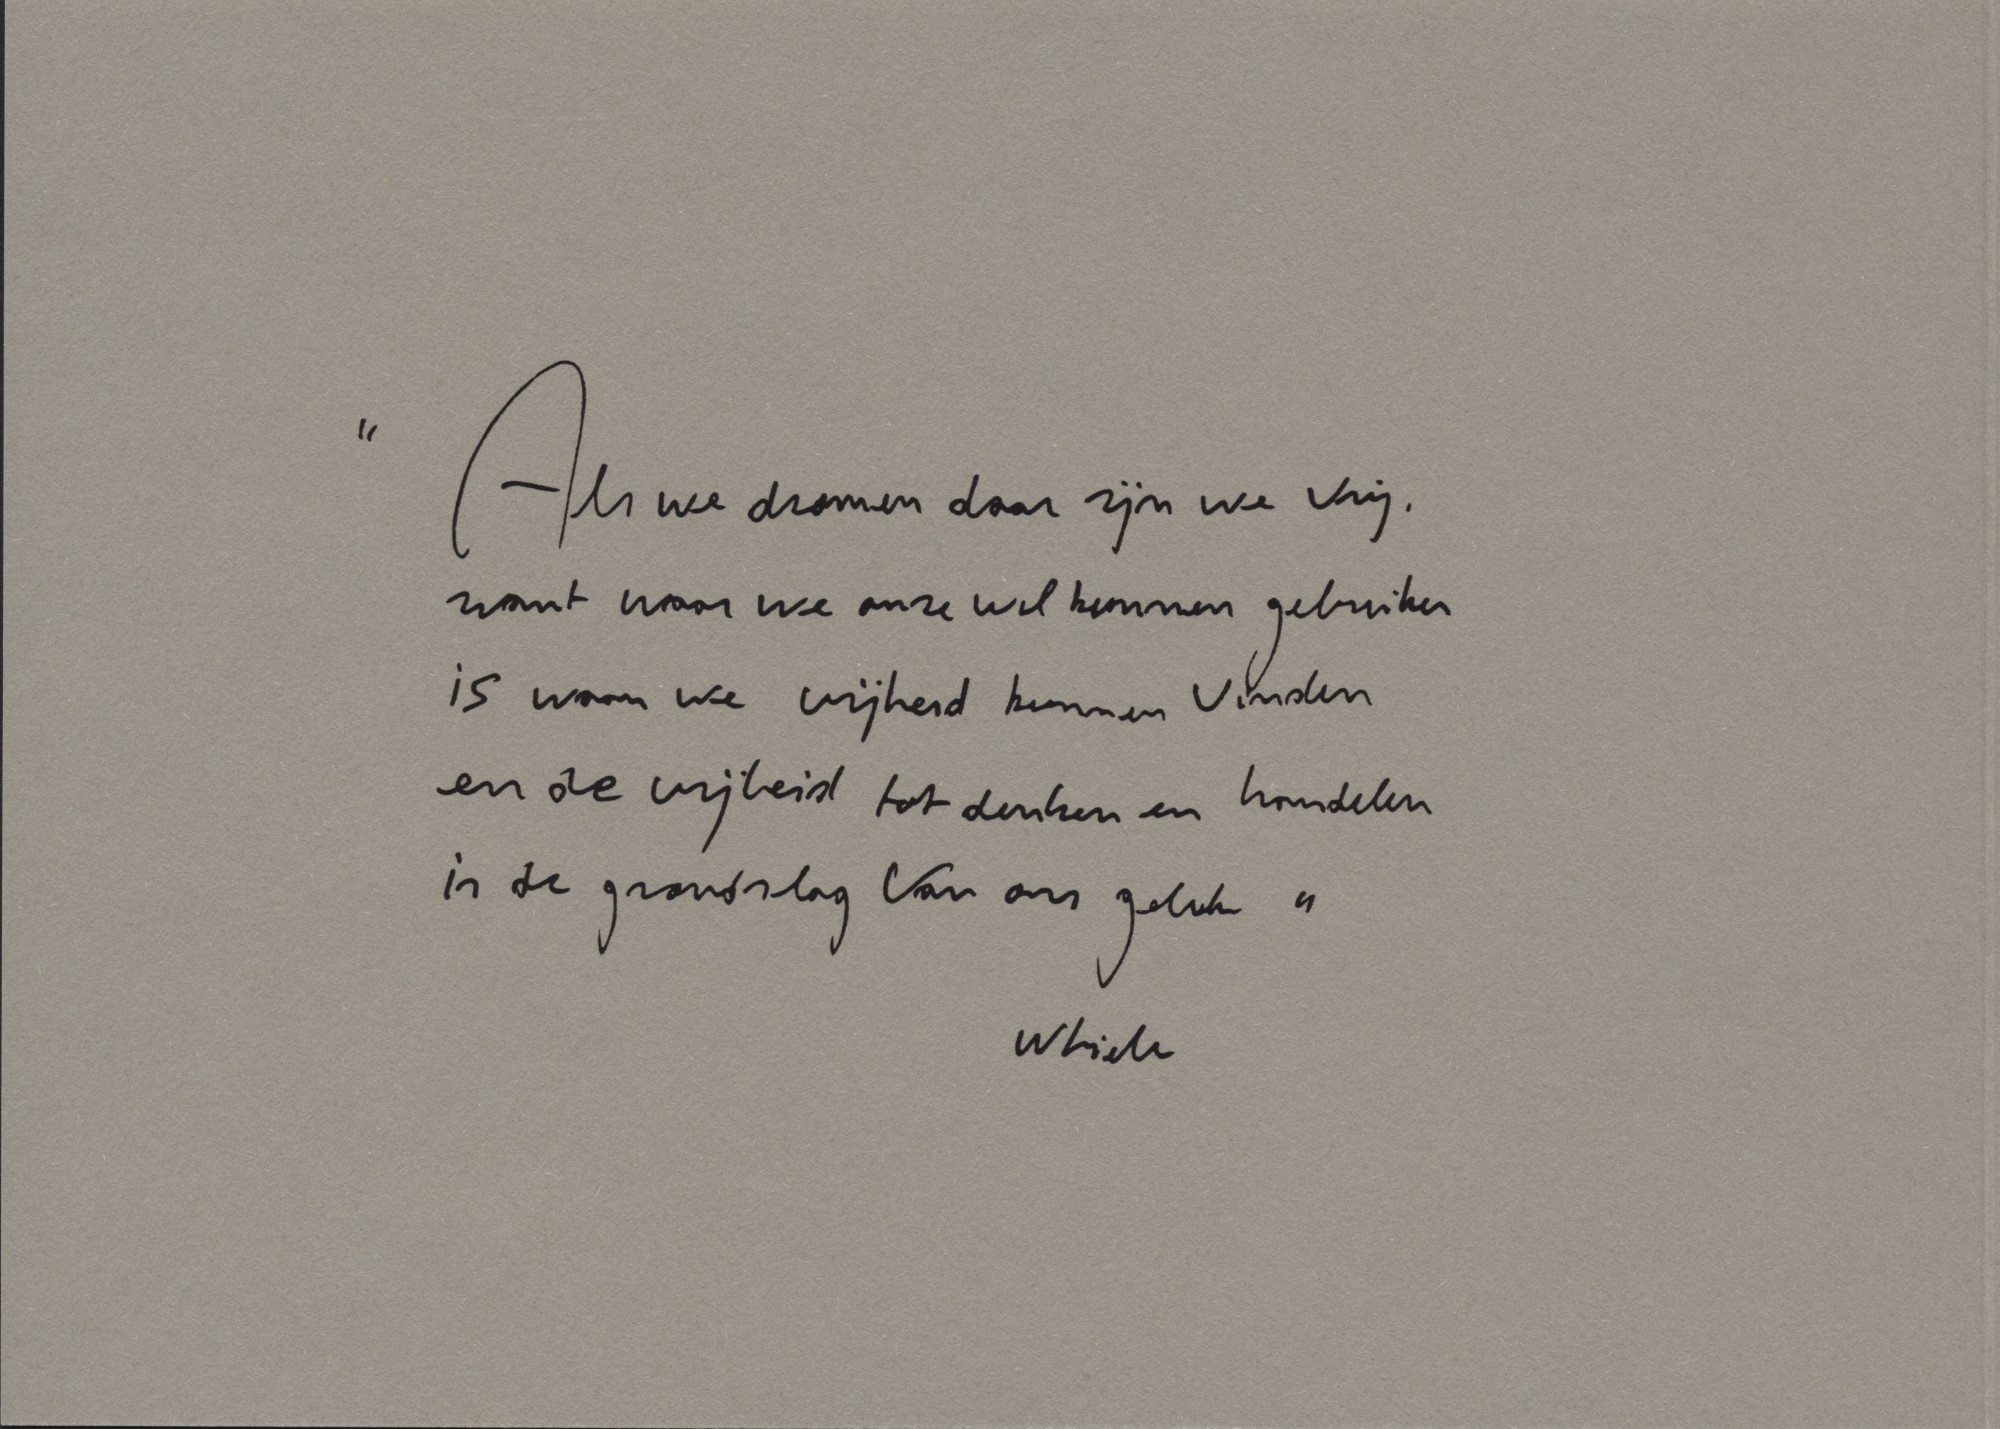 " Als we dromen daar zijn we vrij.
want waar we onze wil kunnen gebruiken
is waar we vrijheid kunnen vinden
en de vrijheid tot denken en handelen
is de grondslag van ons geluk "